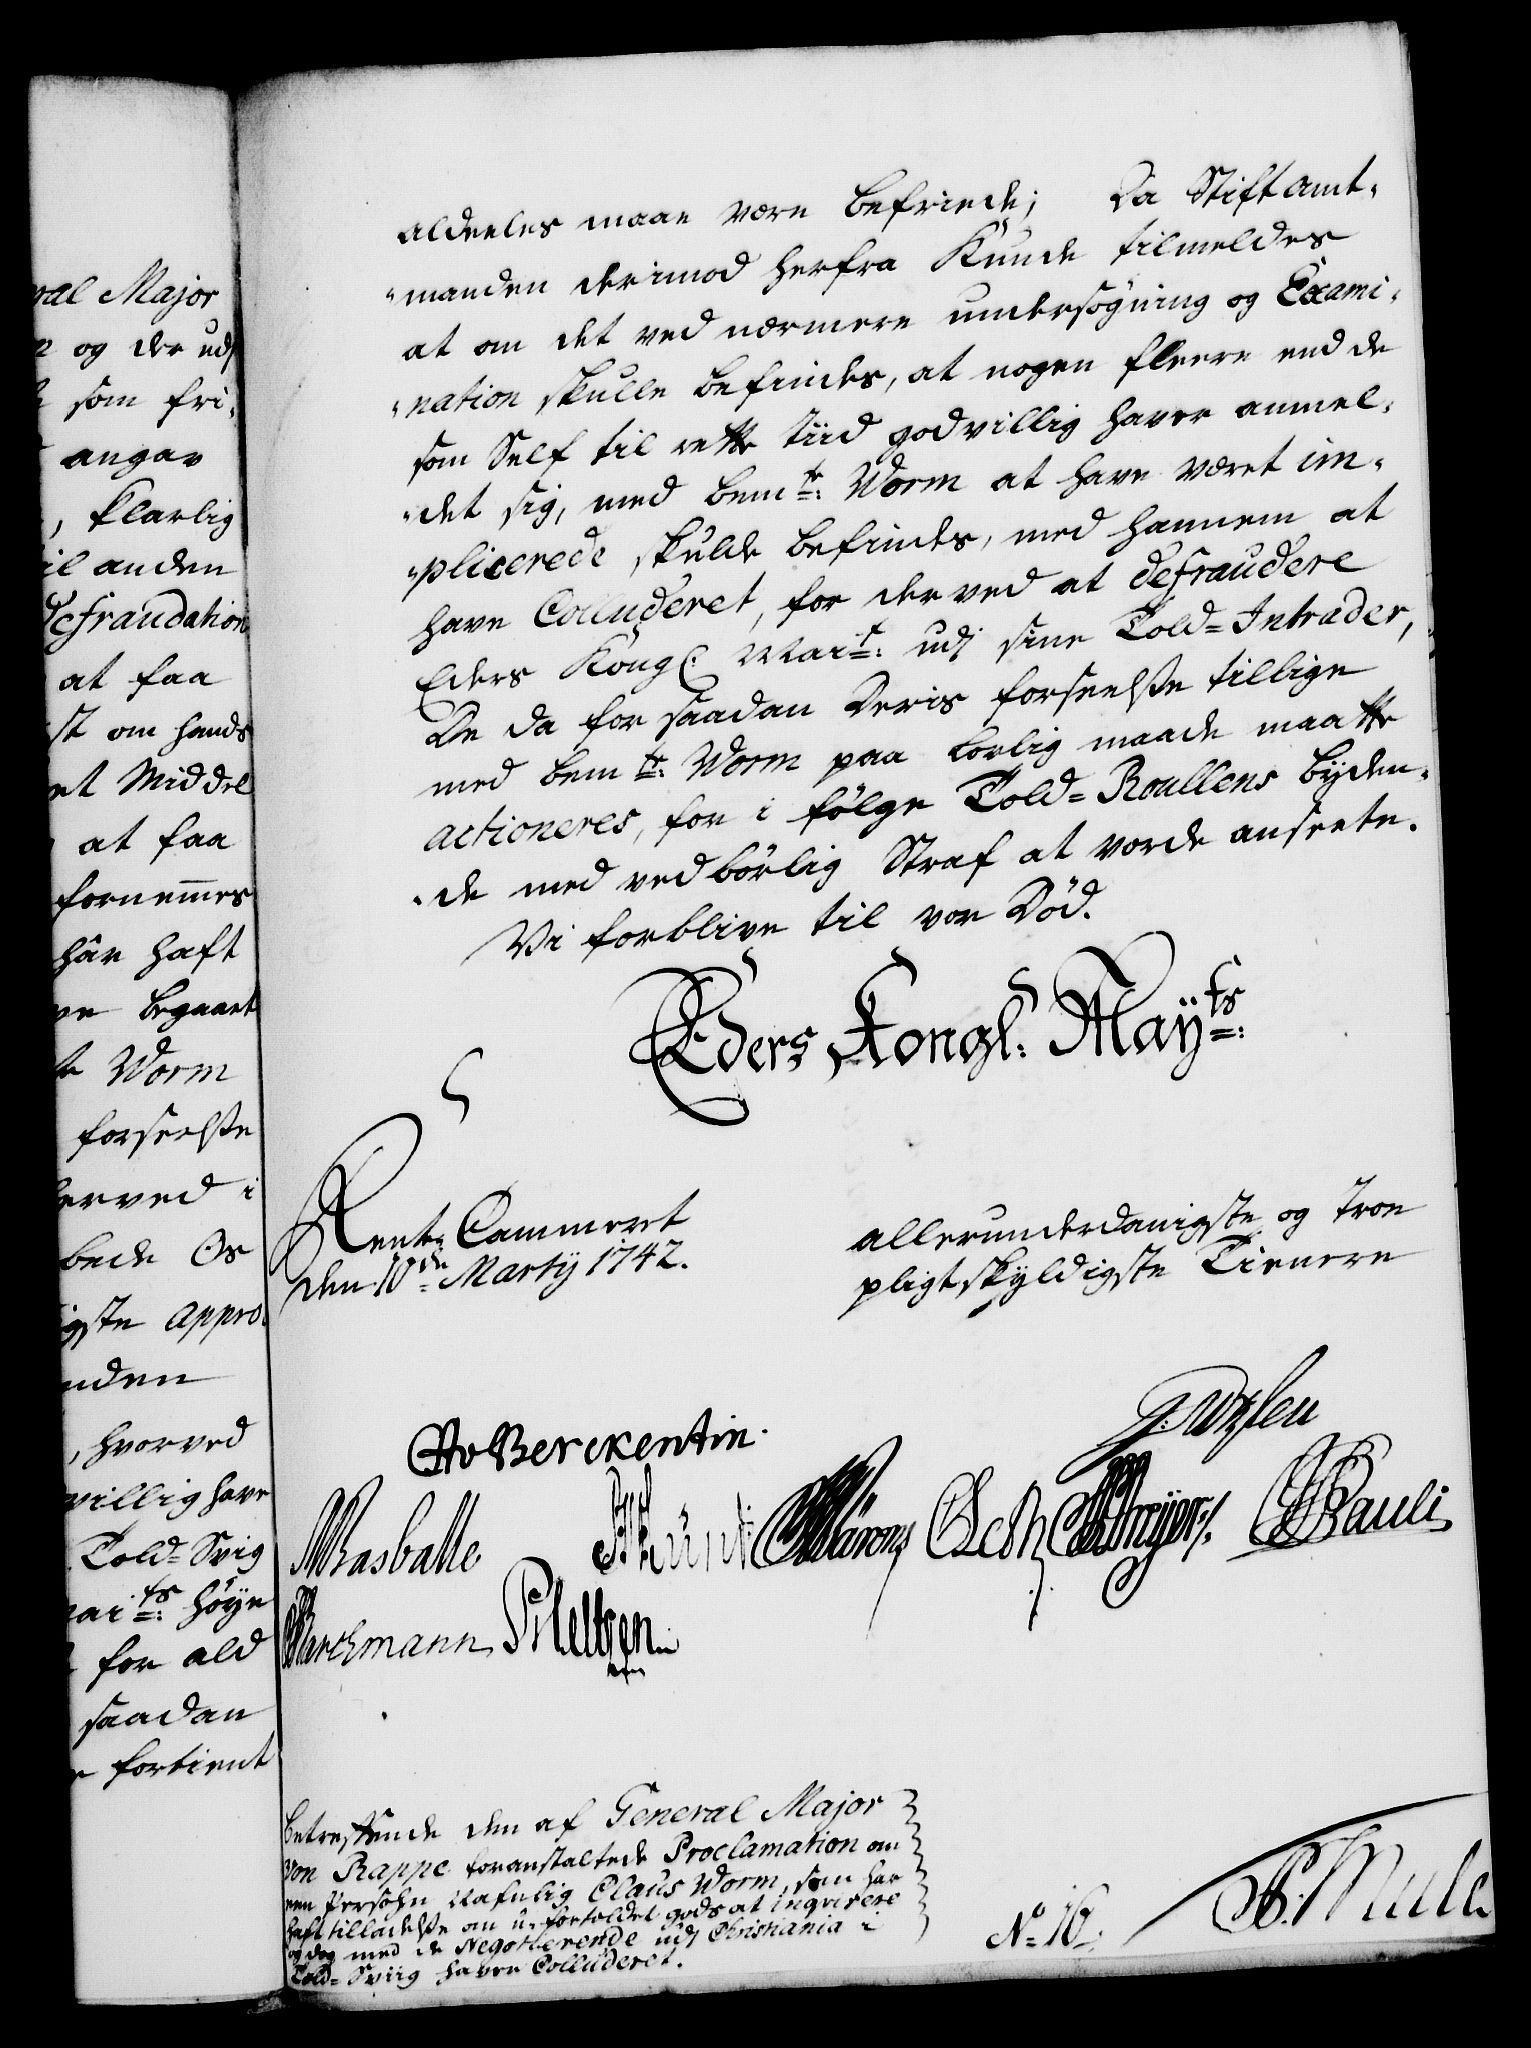 ral Major
og der udj
som fri-
angav
, klarlig
til anden
defraudation
at faa
st om hands
et Middel
at faa
fornemmes
hâr haft
ve begaaet
te Worm
forseelsse
herved i
bede Os
igste appro-
nden
, hvorved
villig have
Told-Svig
Maits: höye
for ald
saadan
e fortient
aldeeles maae være befriede; Da Stiftamt-
manden derimod herfra Kunde tilmeldes
at om det ved nærmere undersøgning og Exami-
nation skulle befindes, at nogen fleere end de
som Self til rette tiid godvillig haver anmel-
det sig, med bemte: Worm at have været im-
plicerede skulde befindes, med hannem at
have Colluderet, for derved at defraudere
Eders Kongl. Mait: udj sine Told-Intrader,
De da for saadan Deris forseelsse tillige
med bemte: Worm paa lovlig maade maatte
actioneres, for i følge Told-Roullens byden-
de med vedbörlig Straf at vorde anseete.
Vi forblive til vor Död.
Eders Kongl: Mayts:
Rente Cammeret
den 10de Martij 1742.
allerunderdanigste og troe
pligtskyldigste Tienere
Berckentin.
Rasballe
Pauli
Barchmann
PNeltzen
Betreffende den af General Major
von Rappe foranstaltede Proclamation om
een Persohn Nafnlig Claus Worm, som har
haft tilladelsse om u-fortoldet gods at inqvirere
og dog med de Negotierende udj Christiania i
Told-Sviig haver Colluderet.
No 16.
Mule